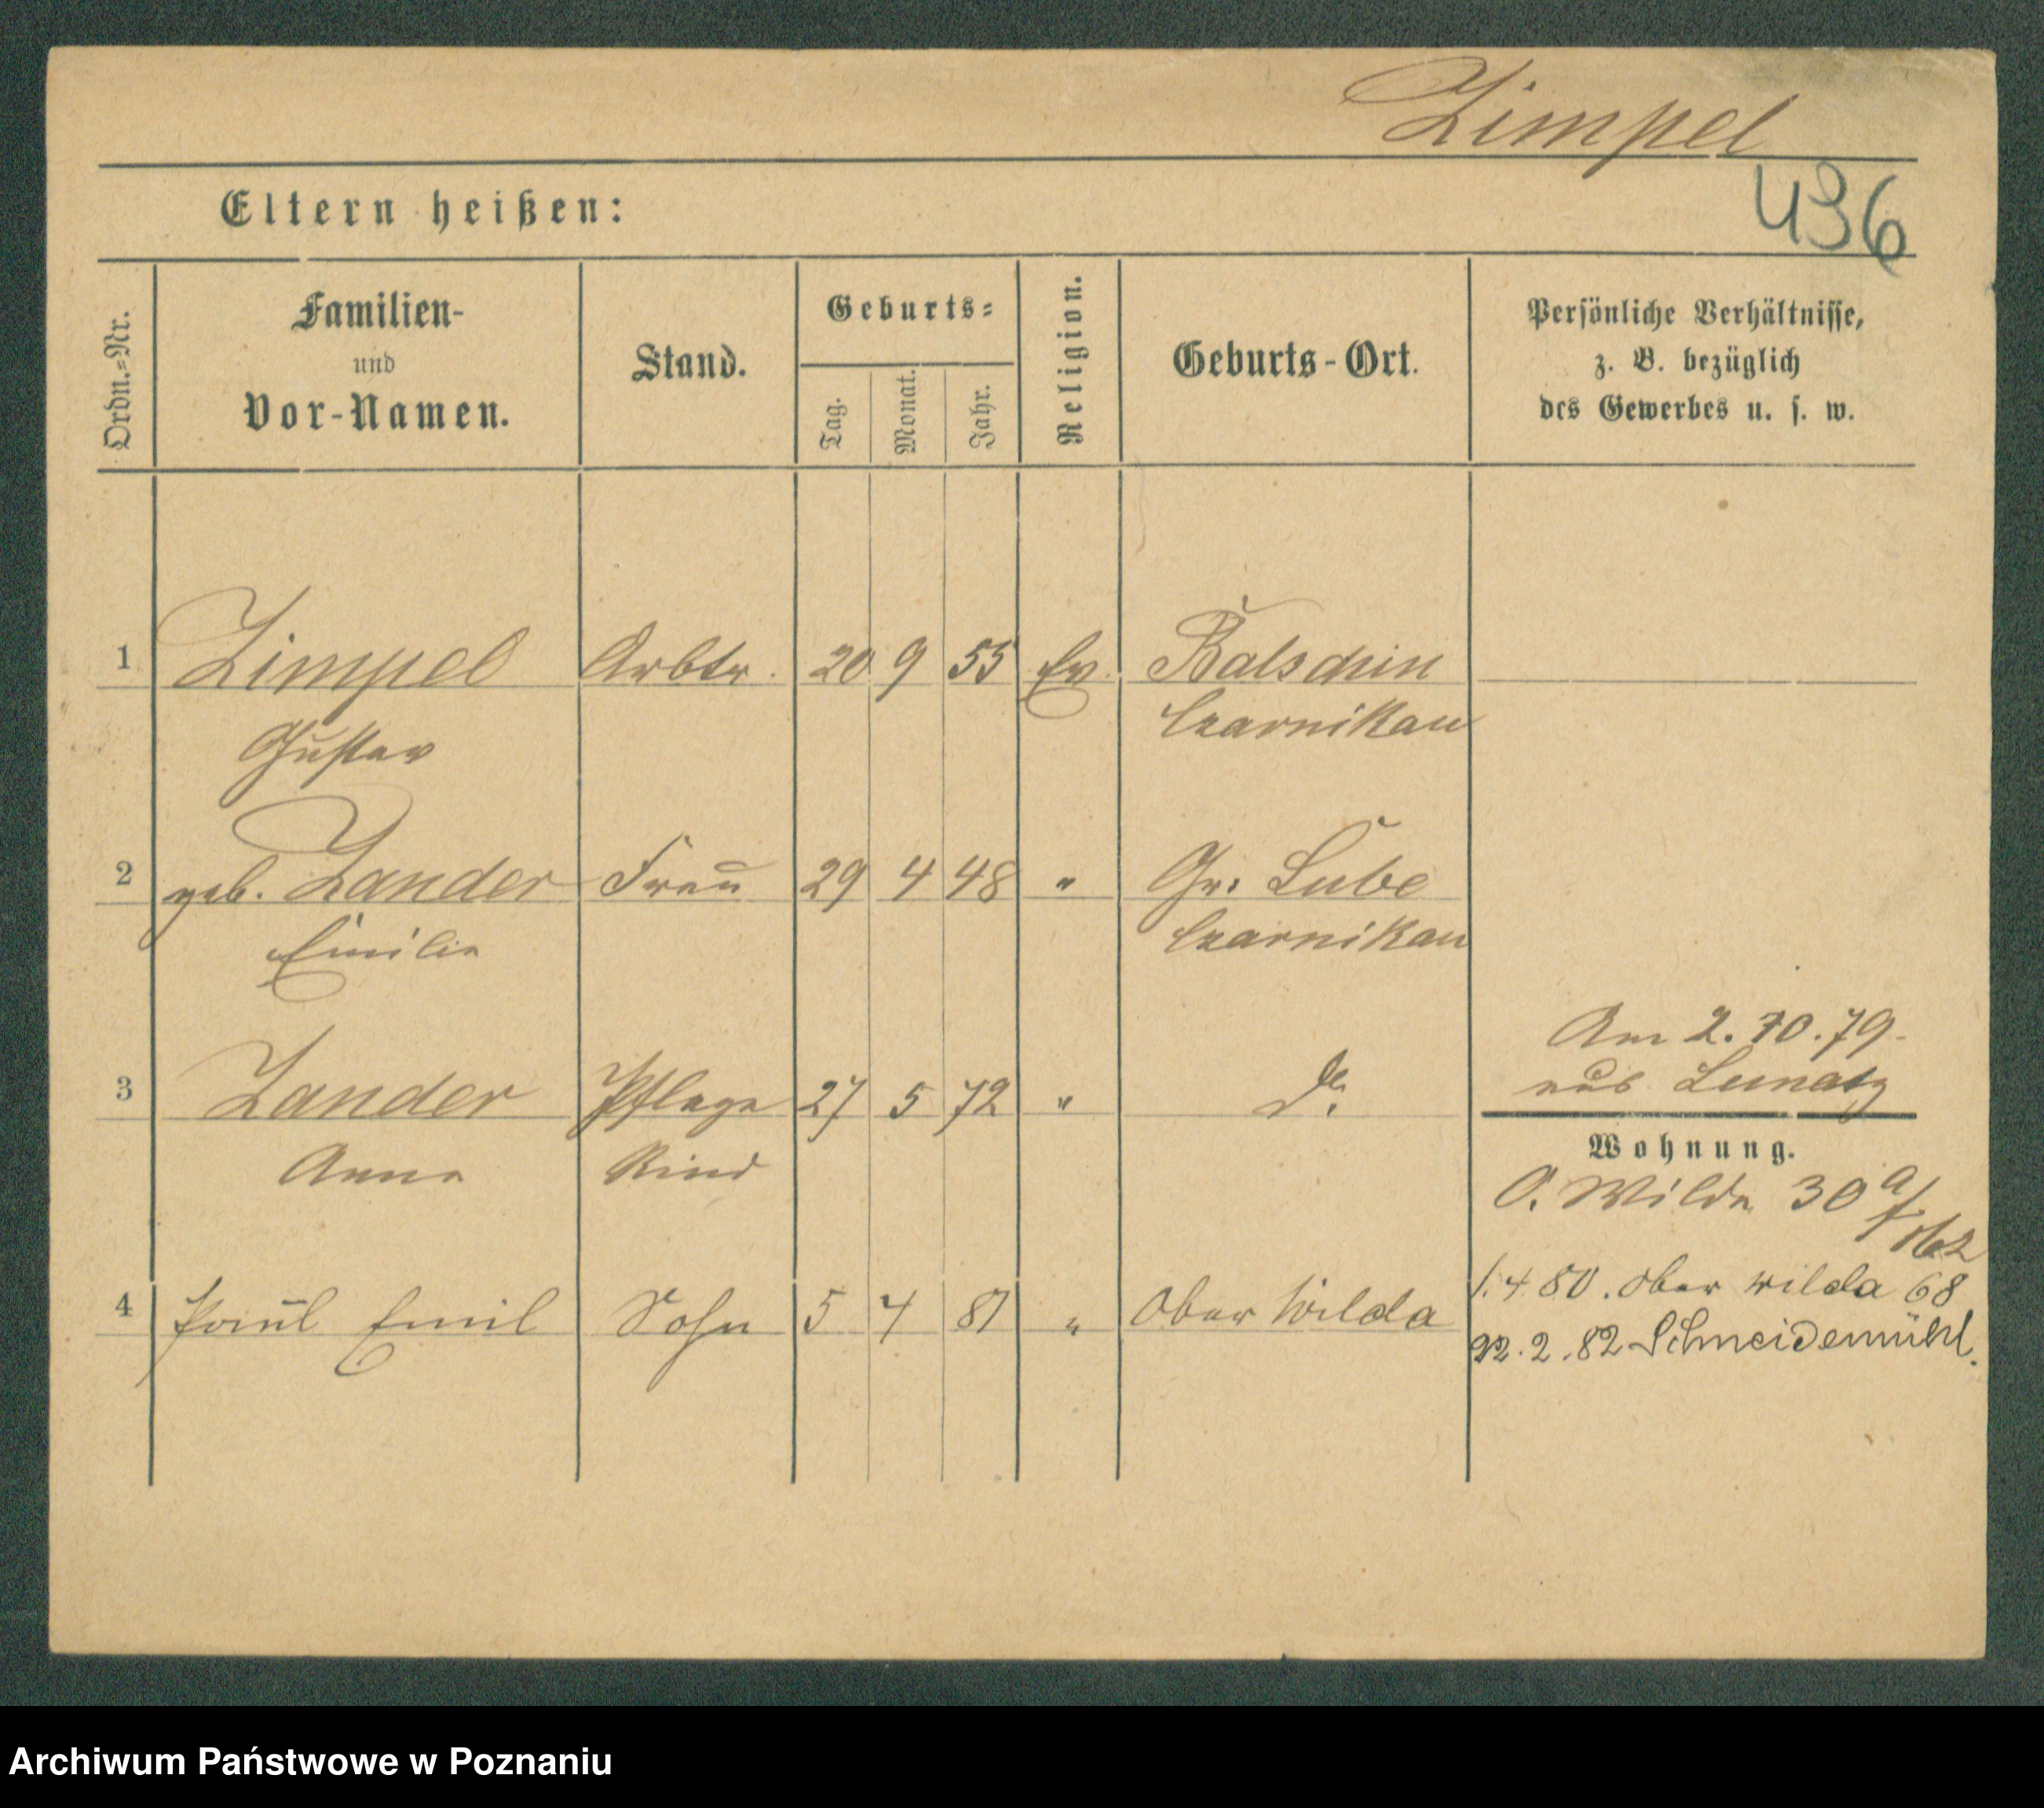 Zimpel
436
Eltern heißen:
Ordn.=Nr.
Familien-
und
Vor-Namen.
Stand.
Geburts=
Tag.
Monat.
Jahr.
Religion.
Geburts-Ort.
Persönliche Verhältnisse,
z. B. bezüglich
des Gewerbes u. s. w.
1 Zimpel Arbtr. 20 9 55 Ev. Balschin
Gustav Czarnikau
2 geb. Zander Frau 29 4 48 " Gr. Lube
Emilie Czarnikau
Am 2.10.79.
3 Zander Pflege 27 5 72 " do. aus
Anna Kind
Wohnung.
O. Wilda 30 a/
4 Paul Emil Sohn 5 4 81 " Ober Wilda
1.4.80. Ober Wilda 68
22.2.82 Schneidemühl.
Archiwum Państwowe w Poznaniu